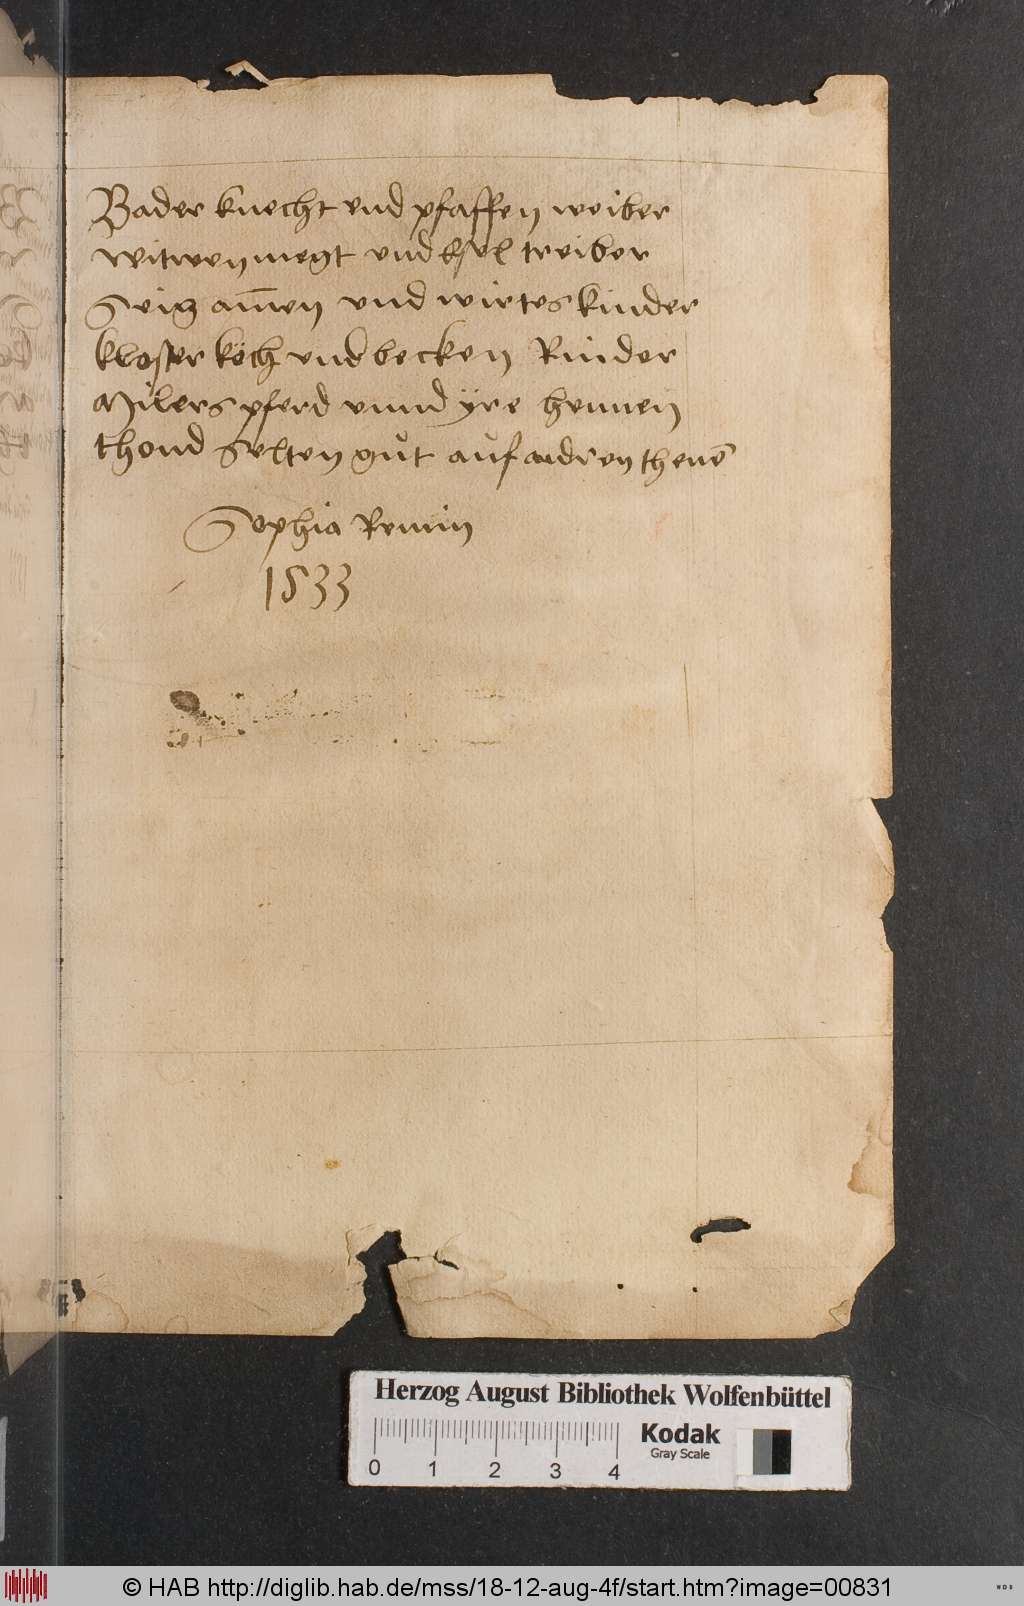 Bader knecht und pfaffen weiber
witwen megt und Esel treiber
Seig am̄en und wirtes kinder
kloster köch und becken Rinder
Milers pferd unnd ÿre hennen
thond selten gůt aůf andren thenē
Sophia Remin
1533
Herzog August Bibliothek Wolfenbüttel
Kodak
Gray Scale
0 1 2 3 4
© HAB http://diglib.hab.de/mss/18-12-aug-4f/start.htm?image=00831